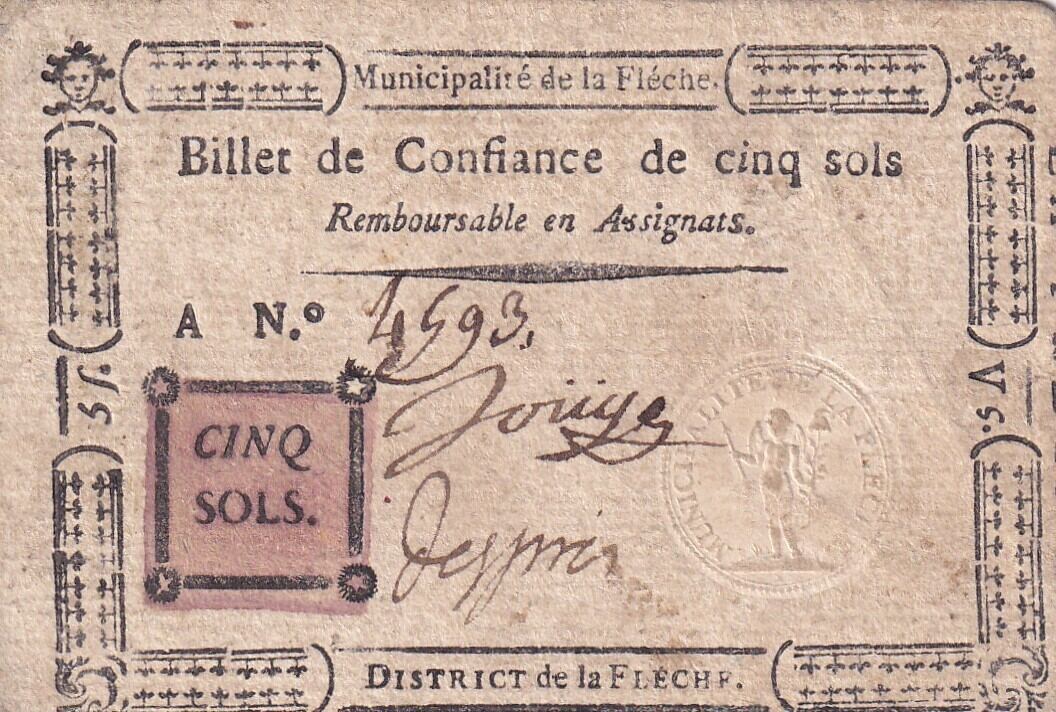 Municipalité de la Fléche.
Billet de Confiance de cinq sols
Remboursable en Assignats.
A N.º 4593.
CINQ
SOLS.
5 s.
5 s.
MUNICIPALITE DE LA FLECHE
DISTRICT de la FLÉCHE.